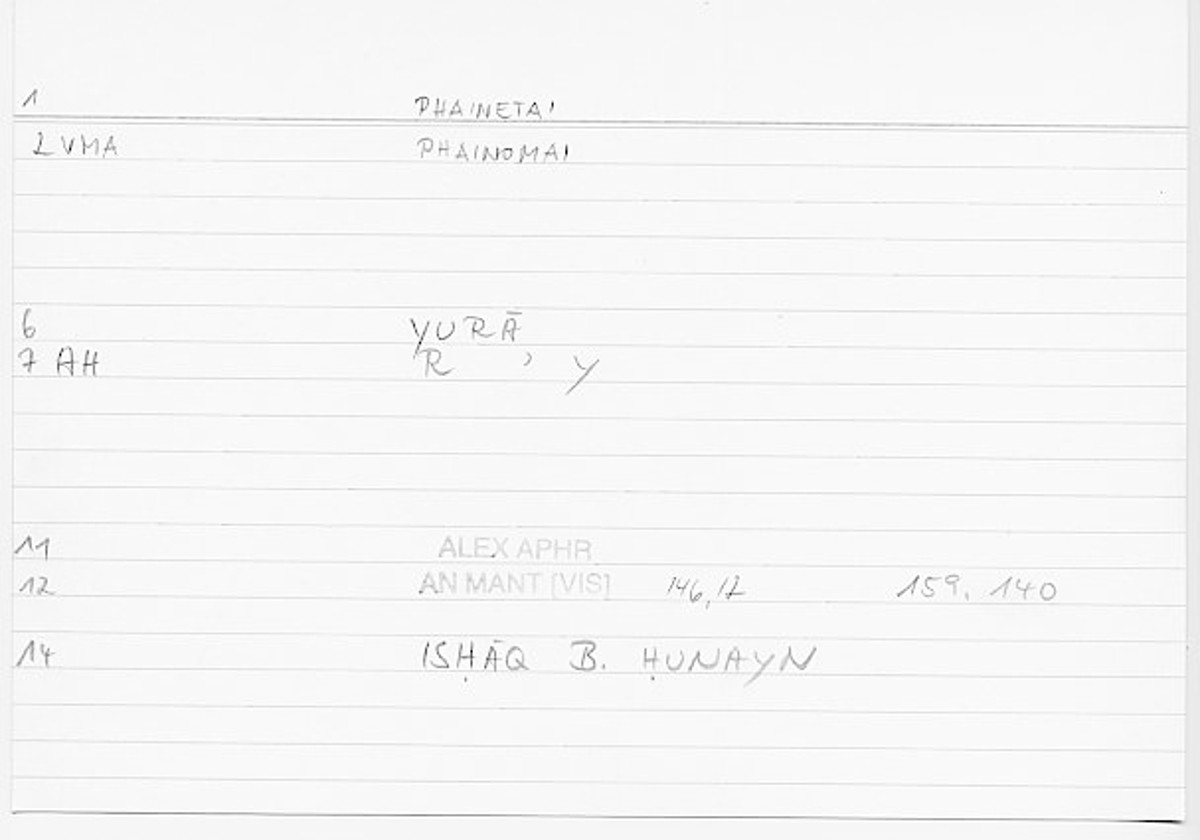 1 PHAINETAI
2 VMA PHAINOMAI
6 YURĀ
7 AH R ʾ Y
11 ALEX APHR
12 AN MANT [VIS] 146,17 159, 140
14 ISḤĀQ B. ḤUNAYN